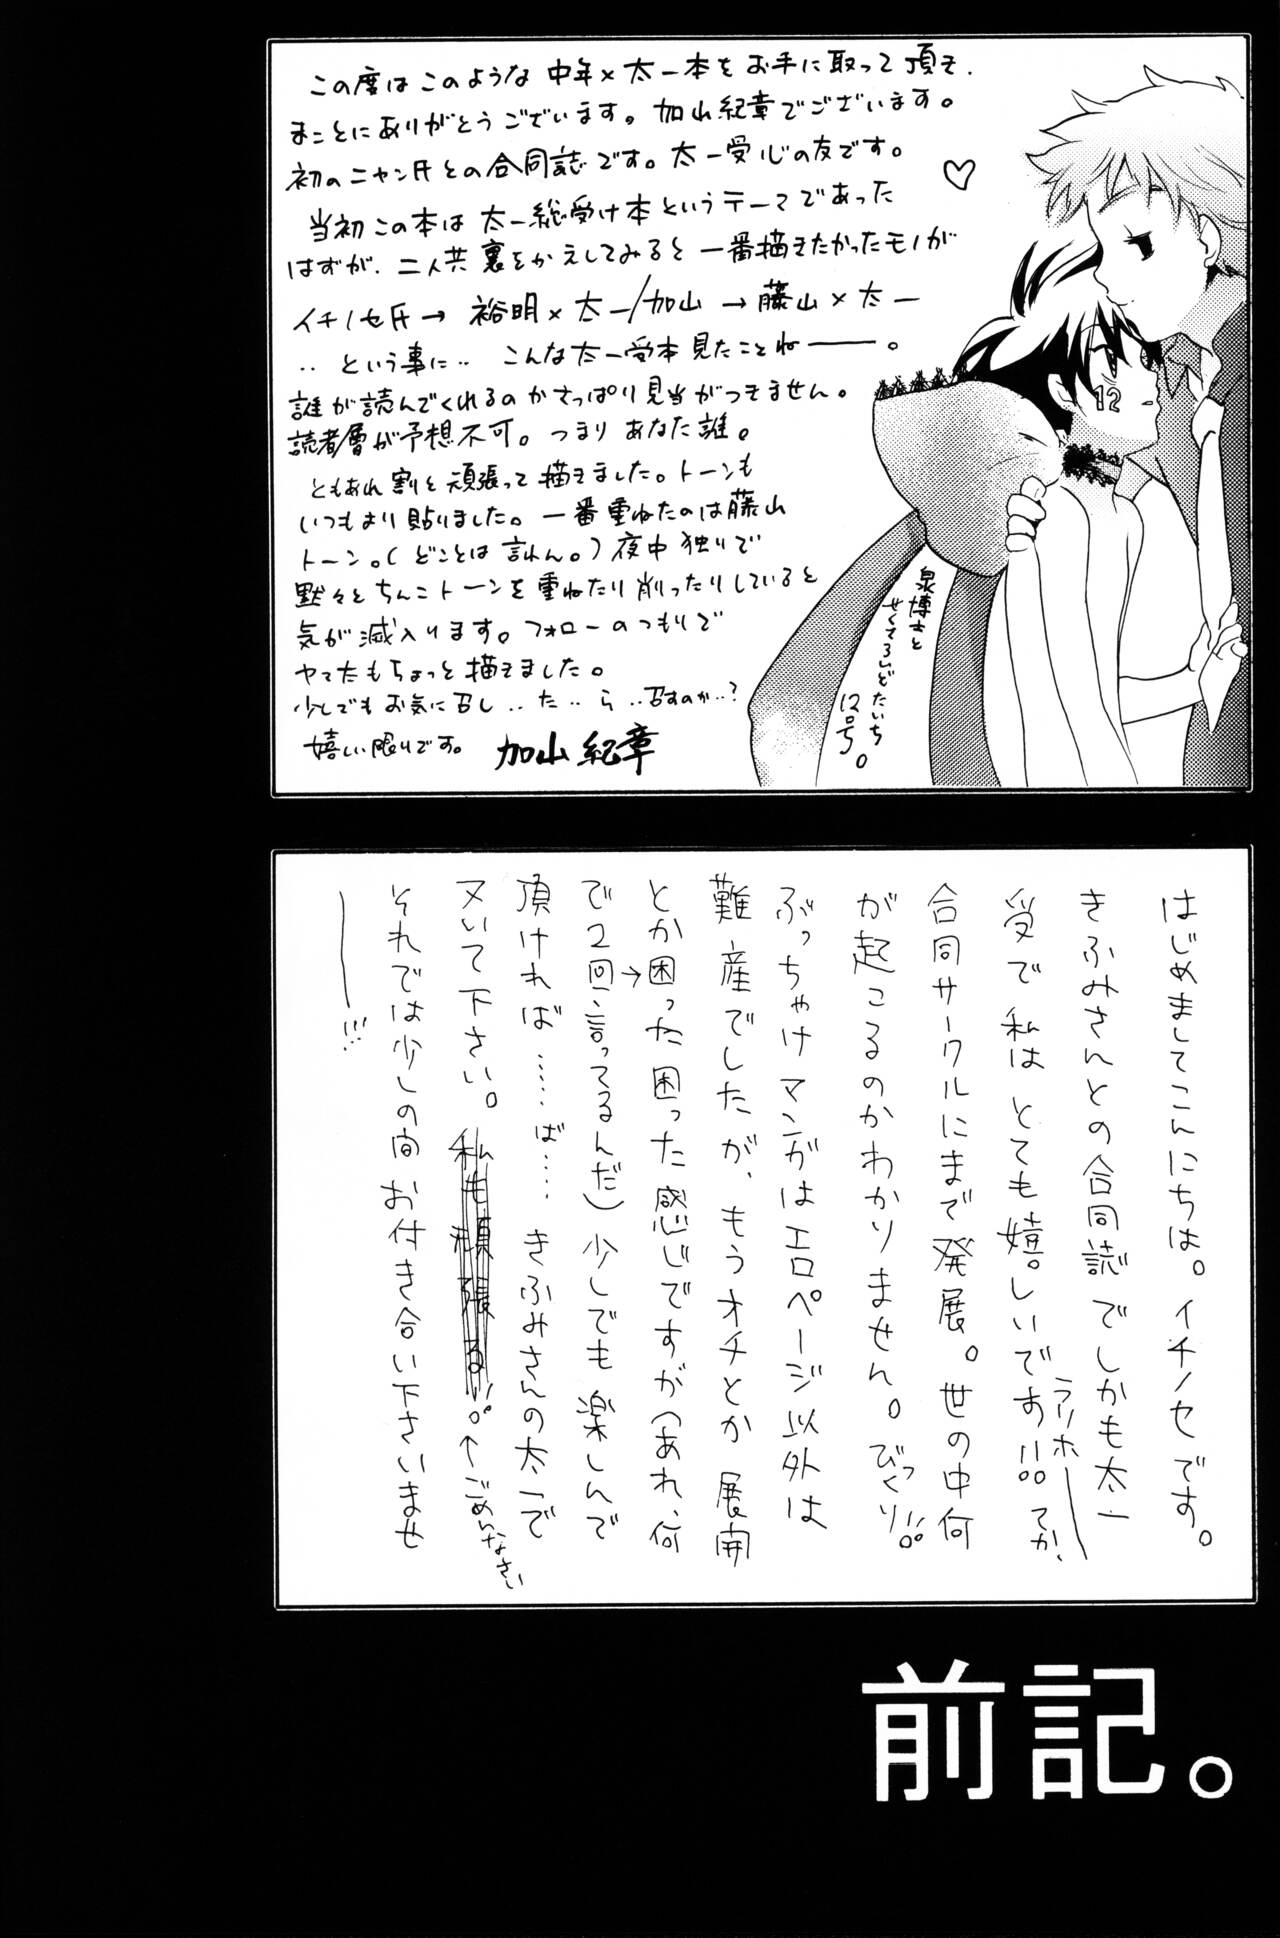 この度はこのような中年×太一本をお手に取って頂き、
まことにありがとうございます。加山紀章でございます。
初のニャン氏との合同誌です。太一受心の友です。
当初この本は太一総受け本というテーマであった
はずが、二人共裏をかえしてみると一番描きたかったモノが
イチノセ氏→裕明×太一/加山→藤山×太一
‥という事に‥ こんな太一受本見たことねーー。
誰が読んでくれるのかさっぱり見当がつきません。
読者層が予想不可。つまりあなた誰。
ともあれ割と頑張って描きました。トーンも
いつもより貼りました。一番重ねたのは藤山
トーン。(どことは言れん。)夜中独りで
黙々とちんこトーンを重ねたり削ったりしていると
気が滅入ります。フォローのつもりで
ヤマ太もちょっと描きました。
少しでもお気に召し‥た‥ら‥召すのか‥?
嬉しい限りです。 加山紀章
12
泉博士と
せくてろいどたいち
12号。
はじめましてこんにちは。イチノセです。
きふみさんとの合同誌でしかも太一
受で私はとても嬉しいです!!。てか、
ラリホーー
合同サークルにまで発展。世の中何
が起こるのかわかりません。びっくり!!。
ぶっちゃけマンガはエロページ以外は
難産でしたが、もうオチとか展開
とか困った→困った感じですが(あれ、何
で2回言ってるんだ)少しでも楽しんで
頂ければ……ば…… きふみさんの太一で
又いて下さい。私も頑張る!!。←ごめんなさい
それでは少しの間お付き合い下さいませ
ーー!!!
前記。